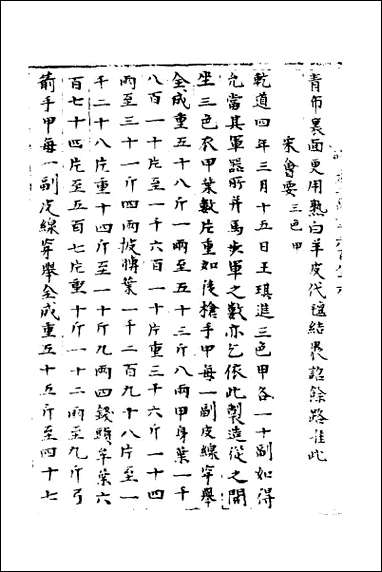 青布裏面更用熟白羊皮代氊結裹詔餘路准此
宋會要 三色甲
乾道四年三月十五日王琪進三色甲各一十副如得
允當其軍器所并馬步軍之數亦乞依此製造從之開
坐三色衣甲葉數片重如後槍手甲每一副皮線穿舉
全成重五十八斤一兩至五十三斤八兩甲身葉一千
八百一十片至一千六百一十片重三十六斤一十四
兩至三十一斤四兩披膊葉一千二百九十八片至一
千二十八片重十四斤至一十斤九兩四錢頭牟葉六
百七十四片至五百七片重一十斤一十二兩至九斤弓
箭手甲每一副皮線穿舉全成重五十五斤至四十七